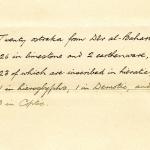 Twenty ostraka from Dêr al-Bahari
26 in limestone and 2 earthenware,
23 of which are inscribed in hieratic
1 in hieroglyphic, 1 in Demotic, and
3 in Coptic.